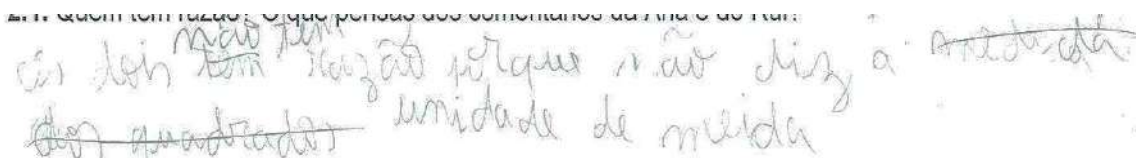 2.1. Quem tem razão? O que pensas dos comentários da Ana e do Rui?
os dois não tem razão porque não diz a medida
dos quadrados unidade de meida